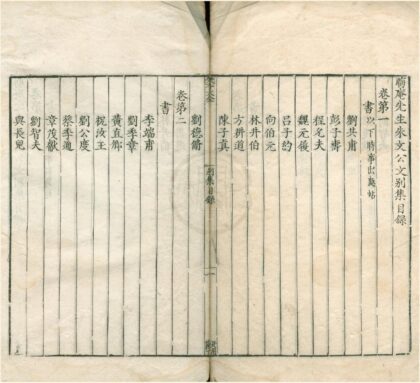 晦庵先生朱文公文別集目錄
卷第一
書 以下時事出處
劉共甫
彭子壽
程允夫
魏元履
呂子約
向伯元
林井伯
方耕道
陳子真
別集目錄
一
劉德脩
卷第二
書
李端甫
劉季章
黃直卿
祝汝玉
劉公度
蔡季通
章茂獻
劉智夫
與長兒